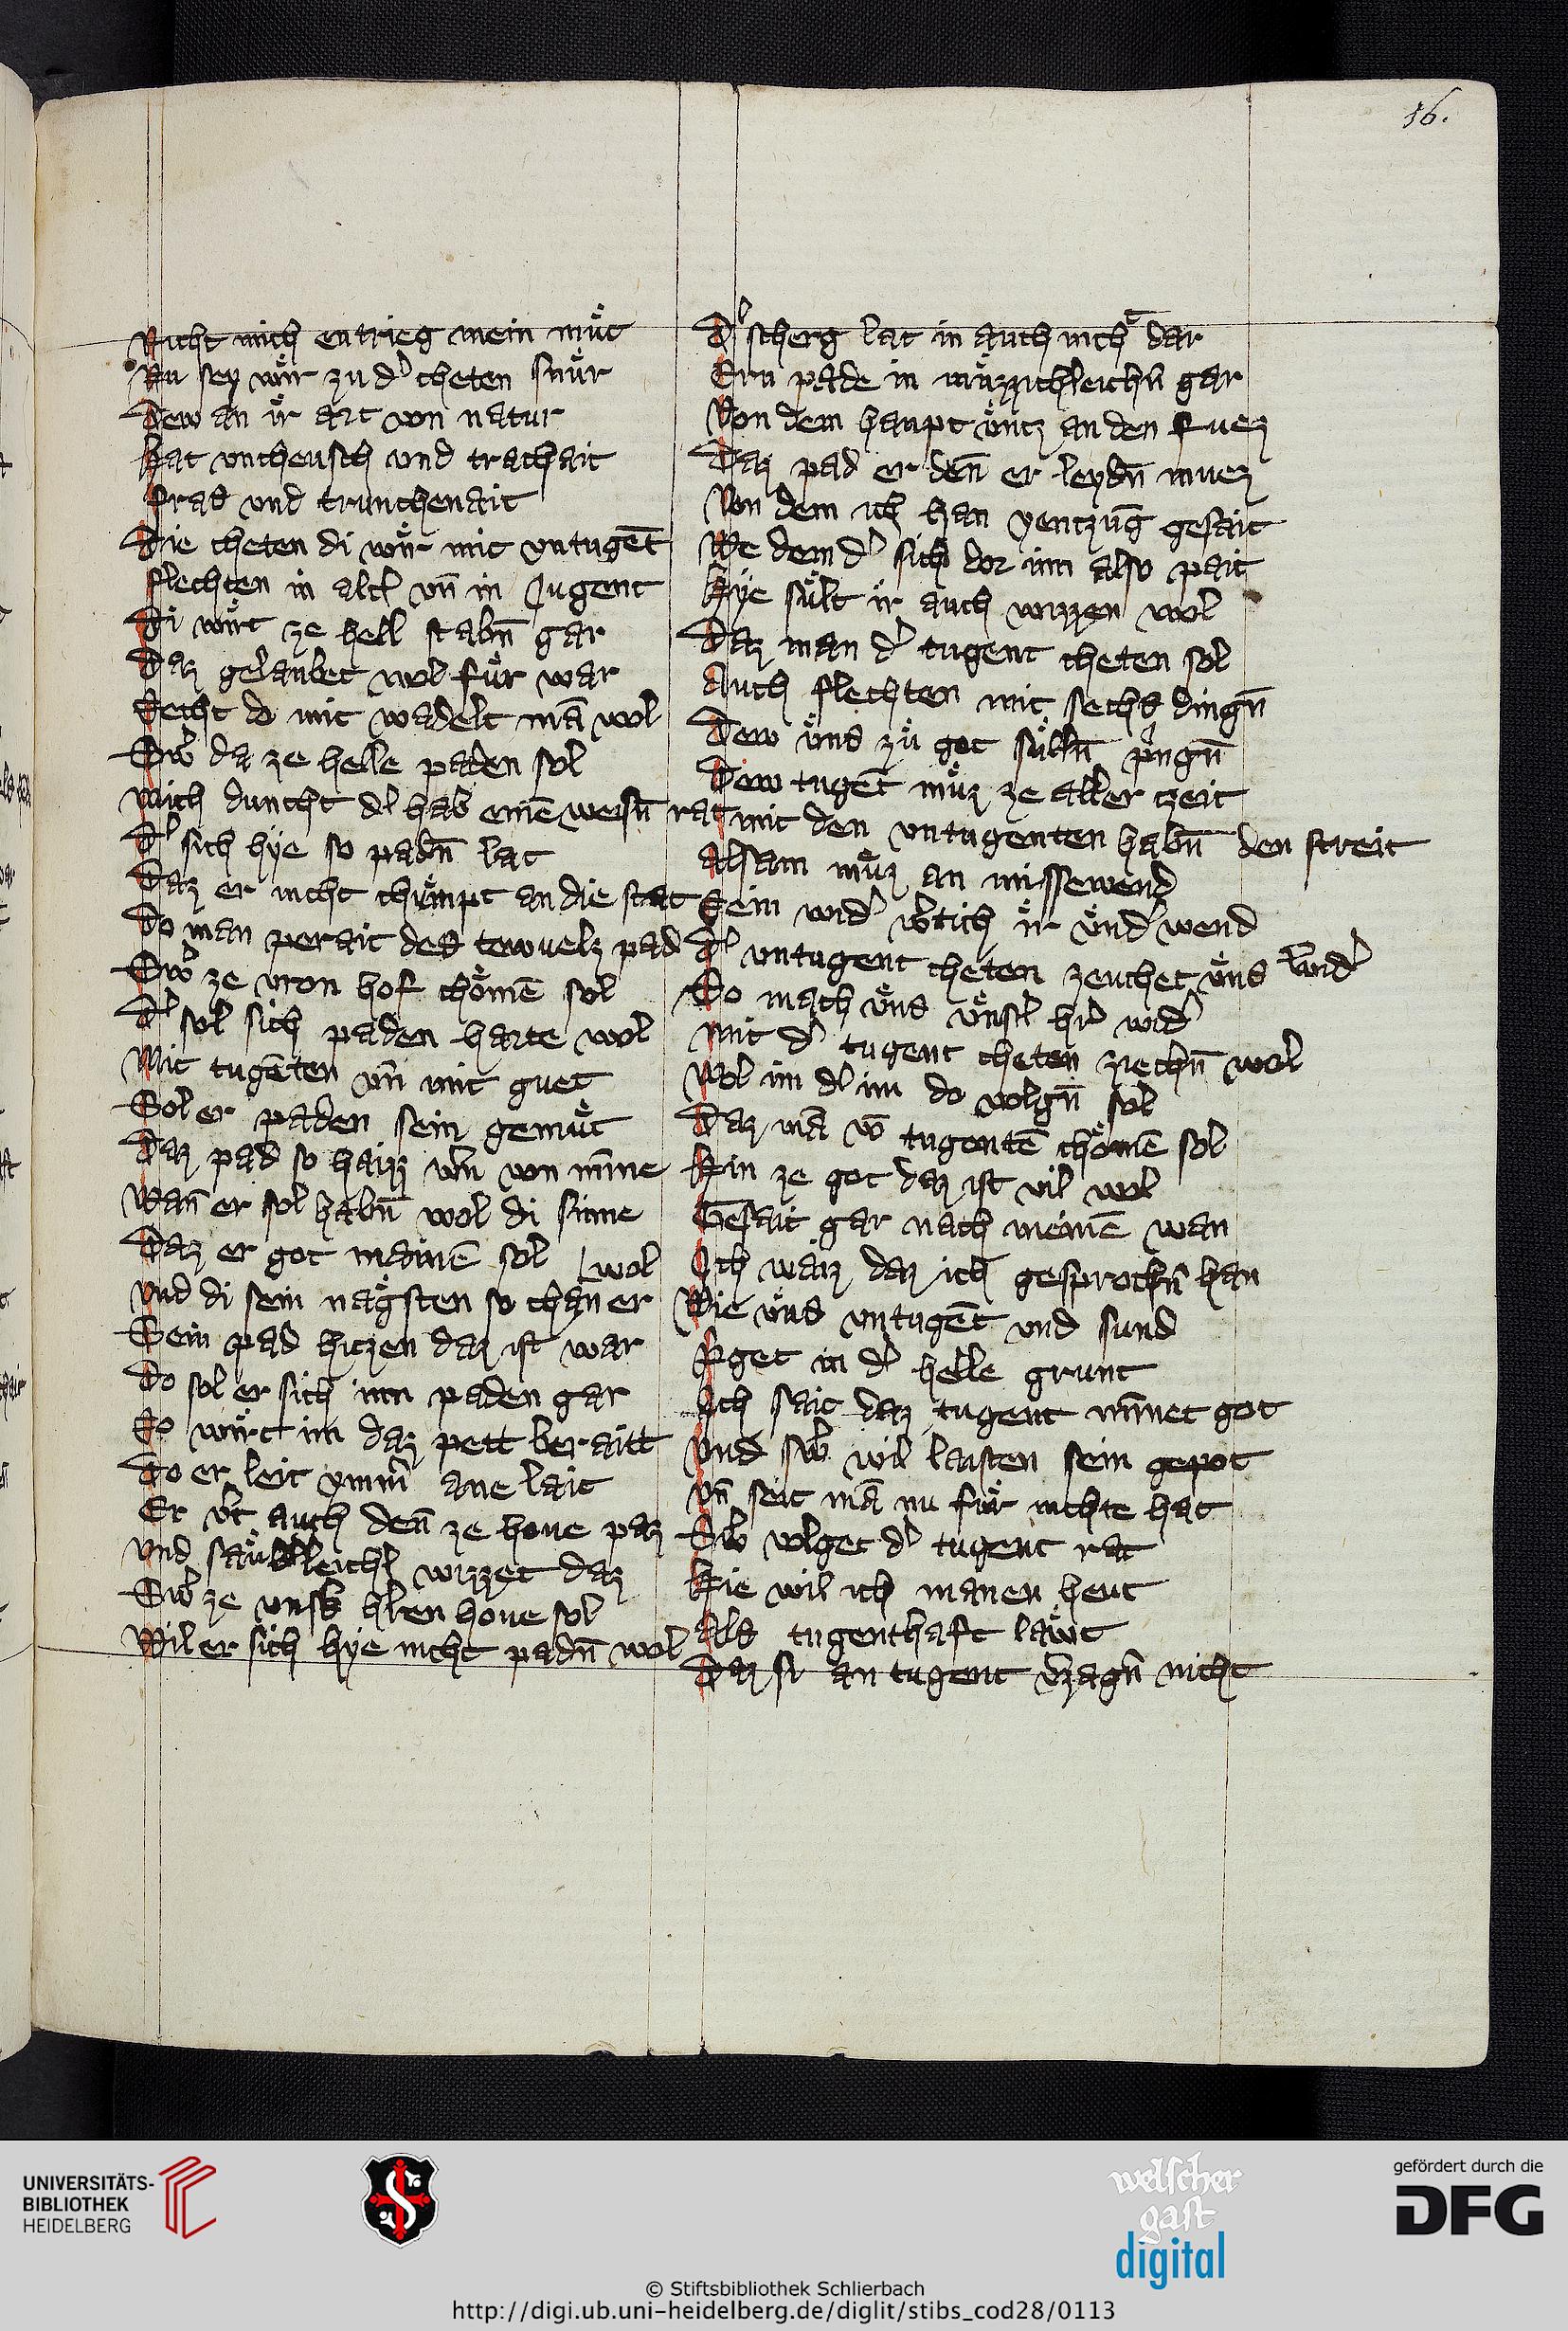 16.
Nicht mich entrieg mein muͤt
Nu sey wir zu d' cheten snuͤr
Dew an ir art von natur
Hat vncheusch und trachait
Frad und trunchenait
Die cheten di wir mit vntugēt
Flechten in alt' vn̄ in Jugent
Di wirt ze hell stabn̄ gar
Daz gelaubet wol fuͤr war
Secht do mit wadelt mā wol
Sw' da ze helle paden sol
Mich duncht d' hab einē weisn̄ rat
D' sich hye so padn̄ lat
Daz er nicht chuͤmpt an die stat
Do man perait des tewuelz pad
Sw' ze vron hof choͤmē sol
D' sol sich paden harte wol
Mit tugēten vn̄ mit guet
Sol er paden sein gemuͤt
Daz pad so haizz von minne
Wan̄ er sol habn̄ wol di sinne
Daz er got mainē sol
Vnd di sein naͤgsten so chan er wol
Sein pad hitzen daz ist war
Do sol er sich inn paden gar
So wirt im daz pett beraitt
Do er leit ymm' ane lait
Er auch den̄ ze houe paz
Vnd wizzet daz
Sw' ze houe sol
Wil er sich hye nicht padn̄ wol
D' scherg lat in auch nicht dar
Ern pade in gar
Von dem haupt uͤntz an den fuez
Daz pad er den̄ er leydn̄ muez
Von dem ich han yentzūg gesait
We dem d' sich dor inn also pait
Hye suͤlt ir auch wizzen wol
Daz man d' tugent cheten sol
Auch flechten mit sechs dingn̄
Dew uͤns zuͤ got suͤlln̄ p'ngn̄
Dew tugēt muͤz ze aller zeit
Mit den vntugenten habn̄ den streit
Alsam muͤz an missewend
Sein wid' ir uͤnd' wend
D' vntugent cheten zeuchet uͤns
So mach uͤns uͤns' hi' wid'
Mit d' tugent cheten ziechn̄ wol
Wol im d' im do volgn̄ sol
Daz mā vō tugentē choͤmē sol
Hin ze got daz ist vil wol
Gesait gar nach meinē wan
Ich waiz daz ich gesprochn̄ han
Wie uͤns vntugēt und sund
in d' helle grunt
Ich sait daz tugent minnet got
Vnd sw' wil laisten sein gepot
Vn̄ seit mā nu fuͤr nichte hat
Sw' volget d' tugent rat
Hie wil ich manen heut
Als tugenthaft laͤwt
Daz si an tugent v'zagn̄ nicht
UNIVERSITÄTS-
BIBLIOTHEK
HEIDELBERG
welscher
gast
digital
gefördert durch die
DFG
© Stiftsbibliothek Schlierbach
http://digi.ub.uni-heidelberg.de/diglit/stibs_cod28/0113